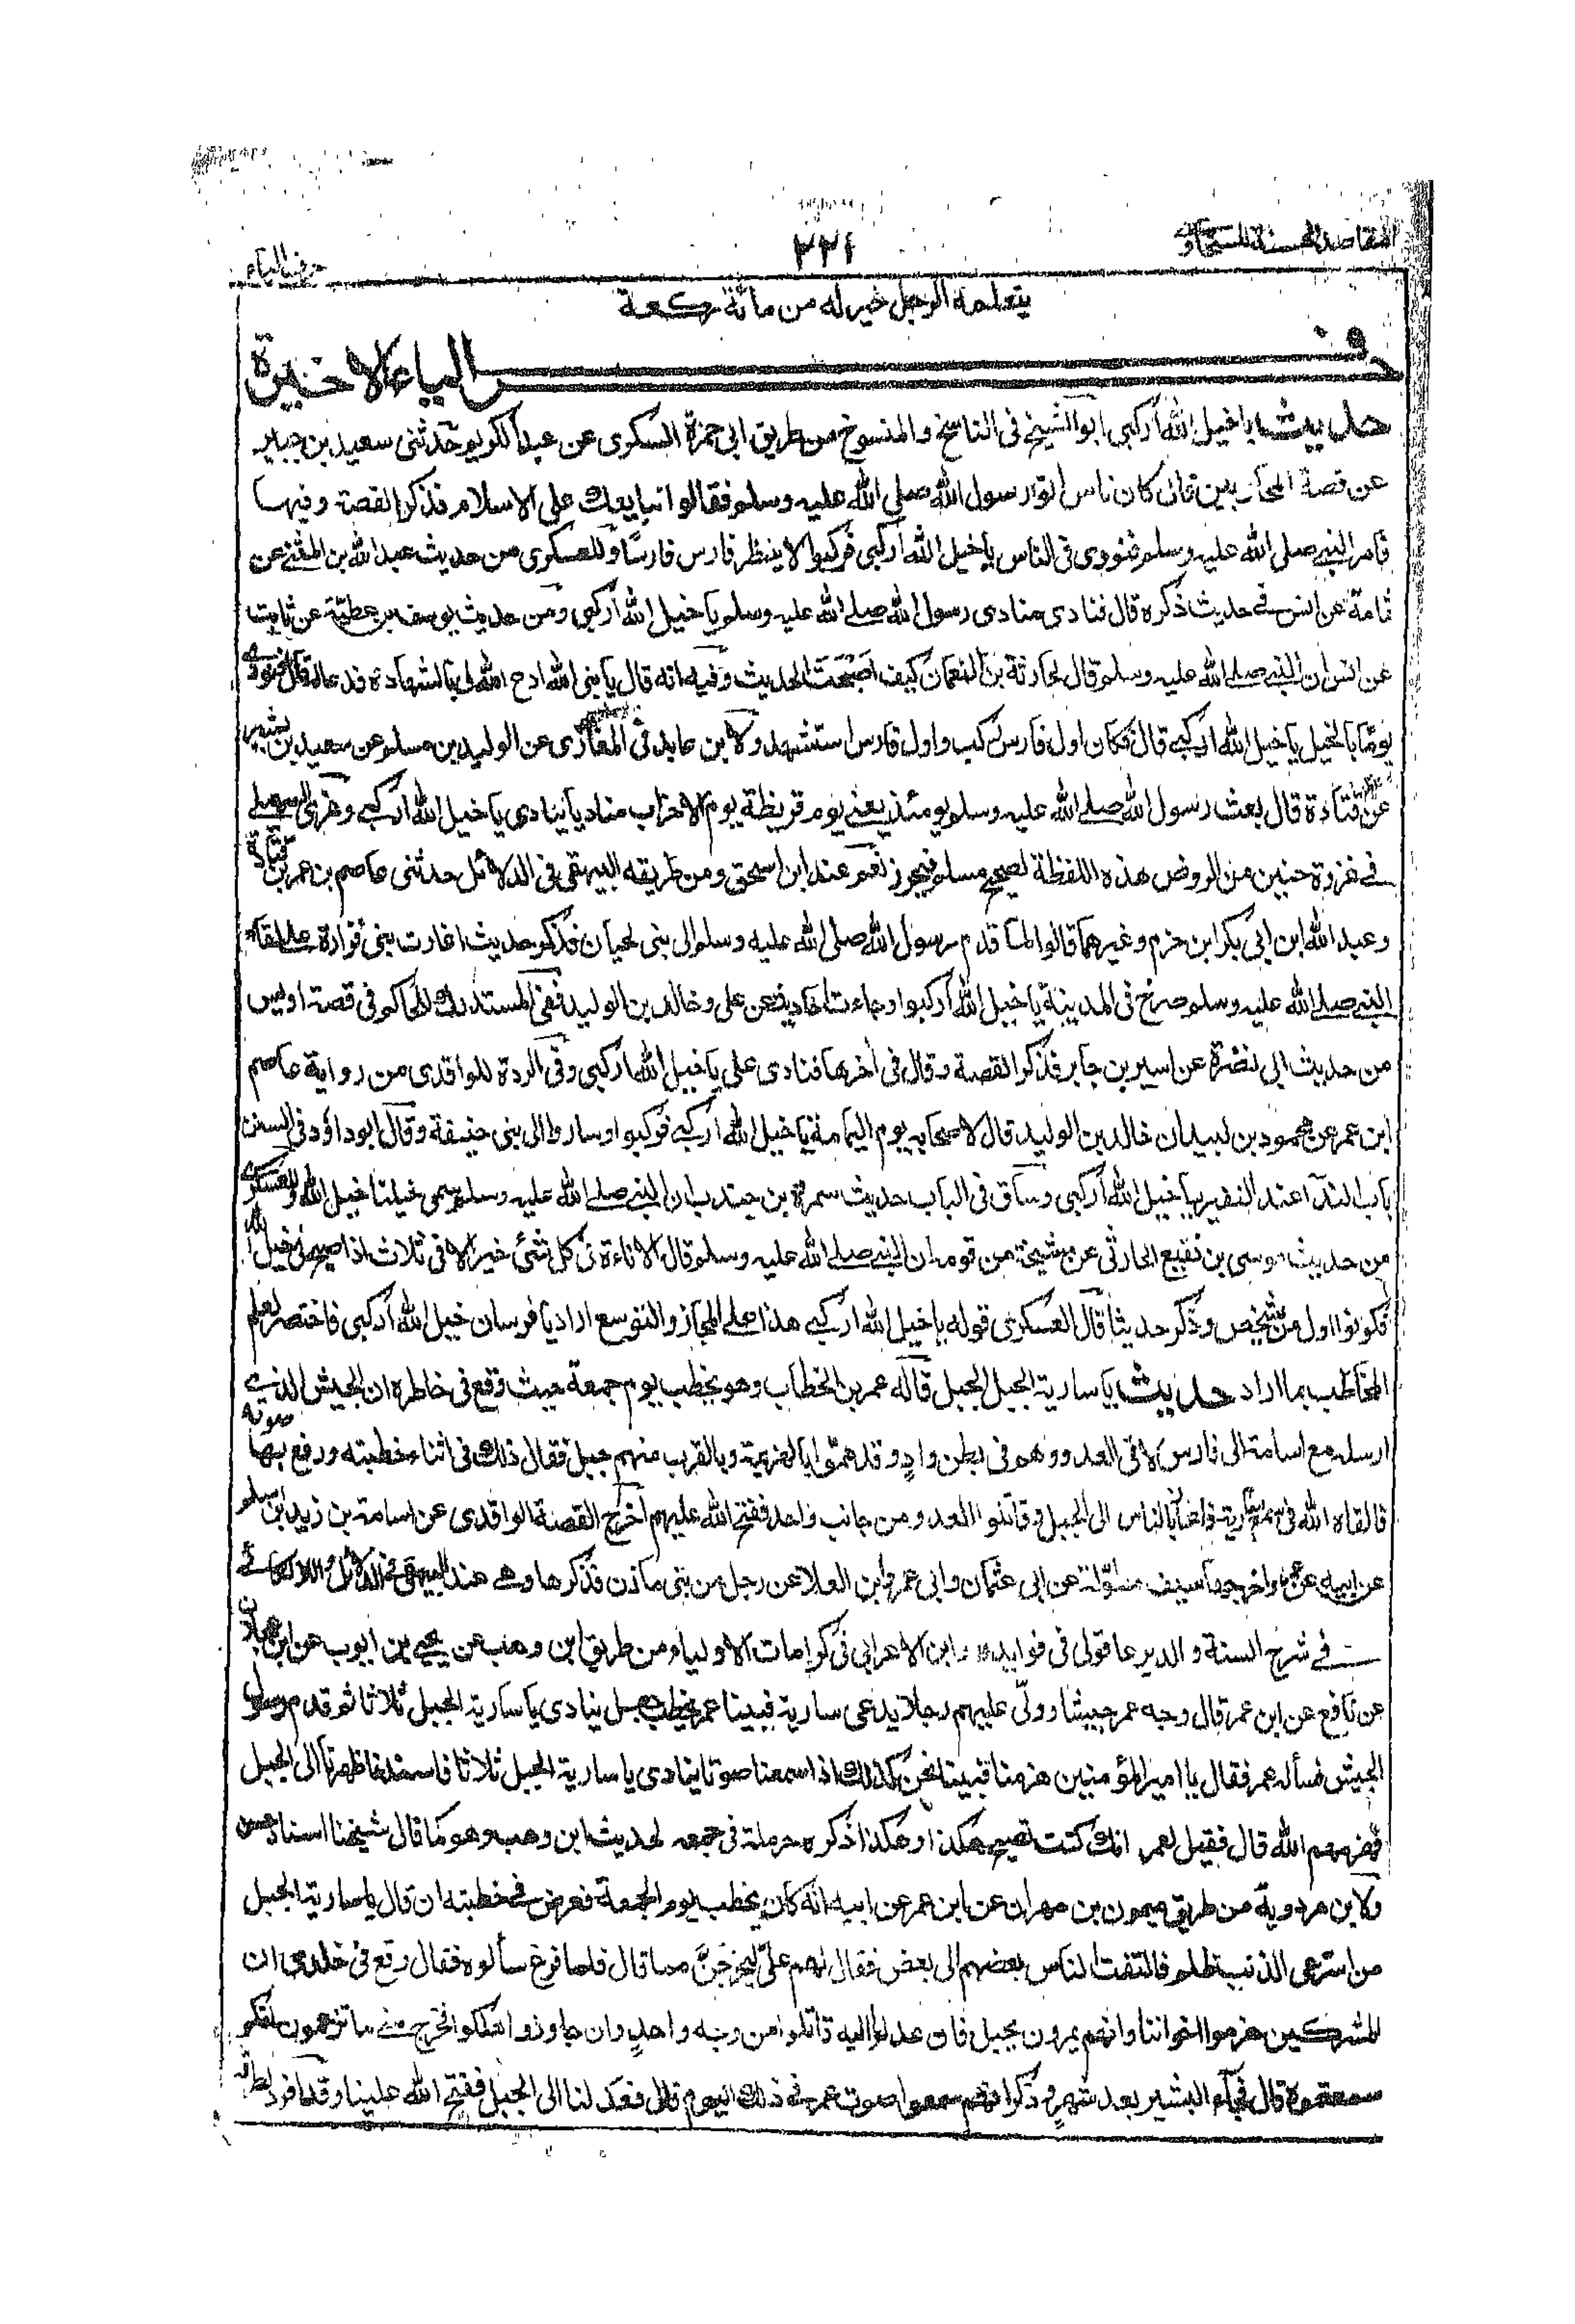 المقاصد الحسنة للسخاوي
٢٢١
حرف الياء
يتعلمه الرجل خير له من مائة ركعة
حرف الياء الاخيرة
حديث يا خيل الله اركبي ابو الشيخ في الناسخ والمنسوخ من طريق ابي حمزة السكري عن عبد الكريم حدثني سعيد بن جبير
عن قصة المحاربين قال كان ناس اتوا رسول الله صلى الله عليه وسلم فقالوا نبايعك على الاسلام فذكر القصة وفيها
فامر النبي صلى الله عليه وسلم فنودي في الناس يا خيل الله اركبي فركبوا لا ينتظر فارس فارسا وللعسكري من حديث عبد الله بن المثنى عن
ثمامة عن انس في حديث ذكره قال فنادى منادي رسول الله صلى الله عليه وسلم يا خيل الله اركبي ومن حديث يوسف بن عطية عن ثابت
عن انس ان النبي صلى الله عليه وسلم قال لحارثة بن النعمان كيف اصبحت الحديث وفيه انه قال يا نبي الله ادع الله لي بالشهادة فدعا له قال فنودي
يوما بالخيل يا خيل الله اركبي قال فكان اول فارس ركب واول فارس استشهد ولابن عايد في المغازي عن الوليد بن مسلم عن سعيد بن بشير
عن قتادة قال بعث رسول الله صلى الله عليه وسلم يومئذ يعني يوم قريظة يوم الاحزاب مناديا ينادي يا خيل الله اركبي وعزى السهيلي
في غزوة حنين من الروض هذه اللفظة لصحيح مسلم فيحرر نعم عند ابن اسحق ومن طريقه البيهقي في الدلائل حدثني عاصم بن عمر بن قتادة
وعبد الله ابن ابي بكر ابن حزم وغيرهما قالوا لما قدم رسول الله صلى الله عليه وسلم الى بني لحيان فذكر حديث اغارت بني فزارة على لقاء
النبي صلى الله عليه وسلم صرخ في المدينة يا خيل الله اركبوا وجاءت احاديث عن علي وخالد بن الوليد ففي المستدرك للحاكم في قصة اويس
من حديث ابي نضرة عن اسير بن جابر فذكر القصة وقال في اخرها فنادى علي يا خيل الله اركبي وفي الردة للواقدي من رواية عاصم
ابن عمر عن محمود بن لبيد ان خالد بن الوليد قال لاصحابه يوم اليمامة يا خيل الله اركبي فركبوا وساروا الى بني حنيفة وقال ابو داؤد في السنن
باب الندآء عند النفير يا خيل الله اركبي وساق في الباب حديث سمرة بن جندب ان النبي صلى الله عليه وسلم سمى خيلنا خيل الله وللعسكري
من حديث موسى بن نفيع الحارثي عن مشيخة من قومه ان النبي صلى الله عليه وسلم قال الاناءة في كل شئ خير الا في ثلاث اذا صيح في خيل الله
فكونوا اول من يشخص وذكر حديثا قال العسكري قوله يا خيل الله اركبي هذا على المجاز والتوسع اراد يا فرسان خيل الله اركبي فاختصر لعلم
المخاطب بما اراد حديث يا سارية الجبل الجبل قاله عمر بن الخطاب وهو يخطب يوم جمعة حيث وقع في خاطره ان الجيش الذي
ارسله مع اسامة الى فارس لاقى العدو وهو في بطن واد وقد هموا بالهزيمة وبالقرب منهم جبل فقال ذلك في اثناء خطبته ورفع بها صوته
فالقاه الله في سمع سارية فانحاز بالناس الى الجبل وقاتلوا العدو من جانب واحد ففتح الله عليهم اخرج القصة الواقدي عن اسامة بن زيد بن اسلم
عن ابيه عن عمر واخرجها سيف مطولة عن ابي عثمان وابي عمرو ابن العلا عن رجل من بني مازن فذكرها وهي عند البيهقي في الدلائل واللالكائي
في شرح السنة والدير عاقولي في فوايده وابن الاعرابي في كرامات الاولياء من طريق ابن وهب عن يحيى بن ايوب عن ابن عجلان
عن نافع عن ابن عمر قال وجه عمر جيشا وولى عليهم رجلا يدعى سارية فبينا عمر يخطب جعل ينادي يا سارية الجبل ثلاثا ثم قدم رسول
الجيش فسأله عمر فقال يا امير المؤمنين هزمنا فبينا نحن كذلك اذ سمعنا صوتا ينادي يا سارية الجبل ثلاثا فاسندنا ظهرنا الى الجبل
فهزمهم الله قال فقيل لعمر انك كنت تصيح هكذا وهكذا ذكره حرملة في جمعه لحديث ابن وهب وهو كما قال شيخنا اسناد حسن
ولابن مردوية من طريق ميمون بن مهران عن ابن عمر عن ابيه انه كان يخطب يوم الجمعة فعرض في خطبته ان قال يا سارية الجبل
من استرعى الذئب ظلم فالتفت الناس بعضهم الى بعض فقال لهم علي ليخرجن مما قال فلما فرغ سألوه فقال وقع في خلدي ان
المشركين هزموا اخواننا وانهم يمرون بجبل فان عدلوا اليه قاتلوا من وجه واحد وان جاوزوا هلكوا فخرج مني ما تزعمون انكم
سمعتموه قال فجآء البشير بعد شهر وذكر انهم سمعوا صوت عمر في ذلك اليوم قال فعدلنا الى الجبل ففتح الله علينا وقد افرد لطرقه